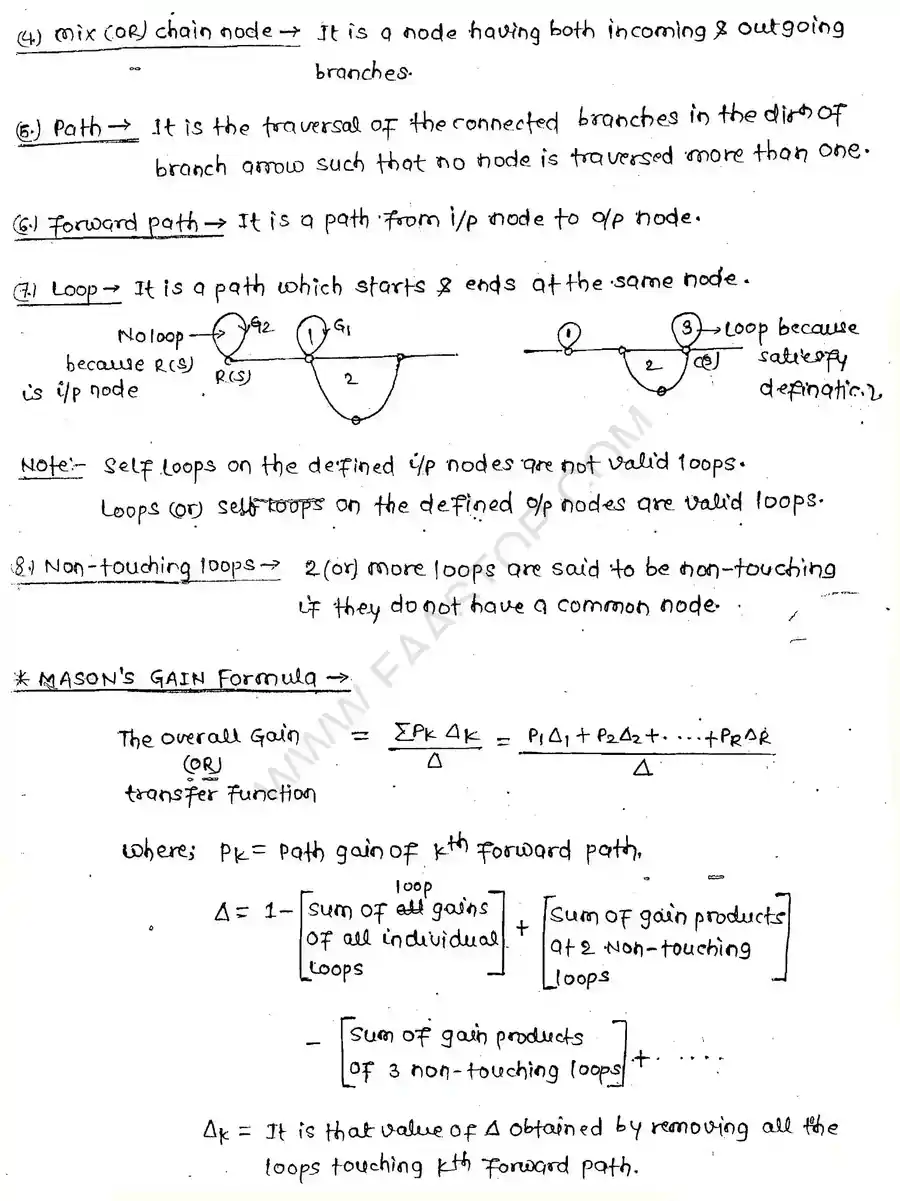 (4.) mix (OR) chain node → It is a node having both incoming & outgoing
branches.
(5.) Path → It is the traversal of the connected branches in the dirn of
branch arrow such that no node is traversed more than one.
(6.) Forward path → It is a path from i/p node to o/p node.
(7.) Loop → It is a path which starts & ends at the same node.
No loop → G2 1 G1 1 3 → Loop because
because R(S) R(S) 2 2 C(S) satisfy
is i/p node
Note:- Self Loops on the defined i/p nodes are not valid loops.
Loops (or) self loops on the defined o/p nodes are valid loops.
8.) Non-touching loops → 2 (or) more loops are said to be non-touching
if they do not have a common node.
* MASON'S GAIN Formula →
The overall Gain = ΣPk Δk / Δ = P1Δ1 + P2Δ2 + ..... + PkΔk / Δ
(OR)
transfer function
where; Pk = Path gain of kth forward path.
loop
Δ = 1 - [Sum of all gains of all individual loops] + [Sum of gain products at 2 Non-touching loops]
- [Sum of gain products of 3 non-touching loops] + .....
Δk = It is that value of Δ obtained by removing all the
loops touching kth forward path.
WWW.FAASTOP.COM